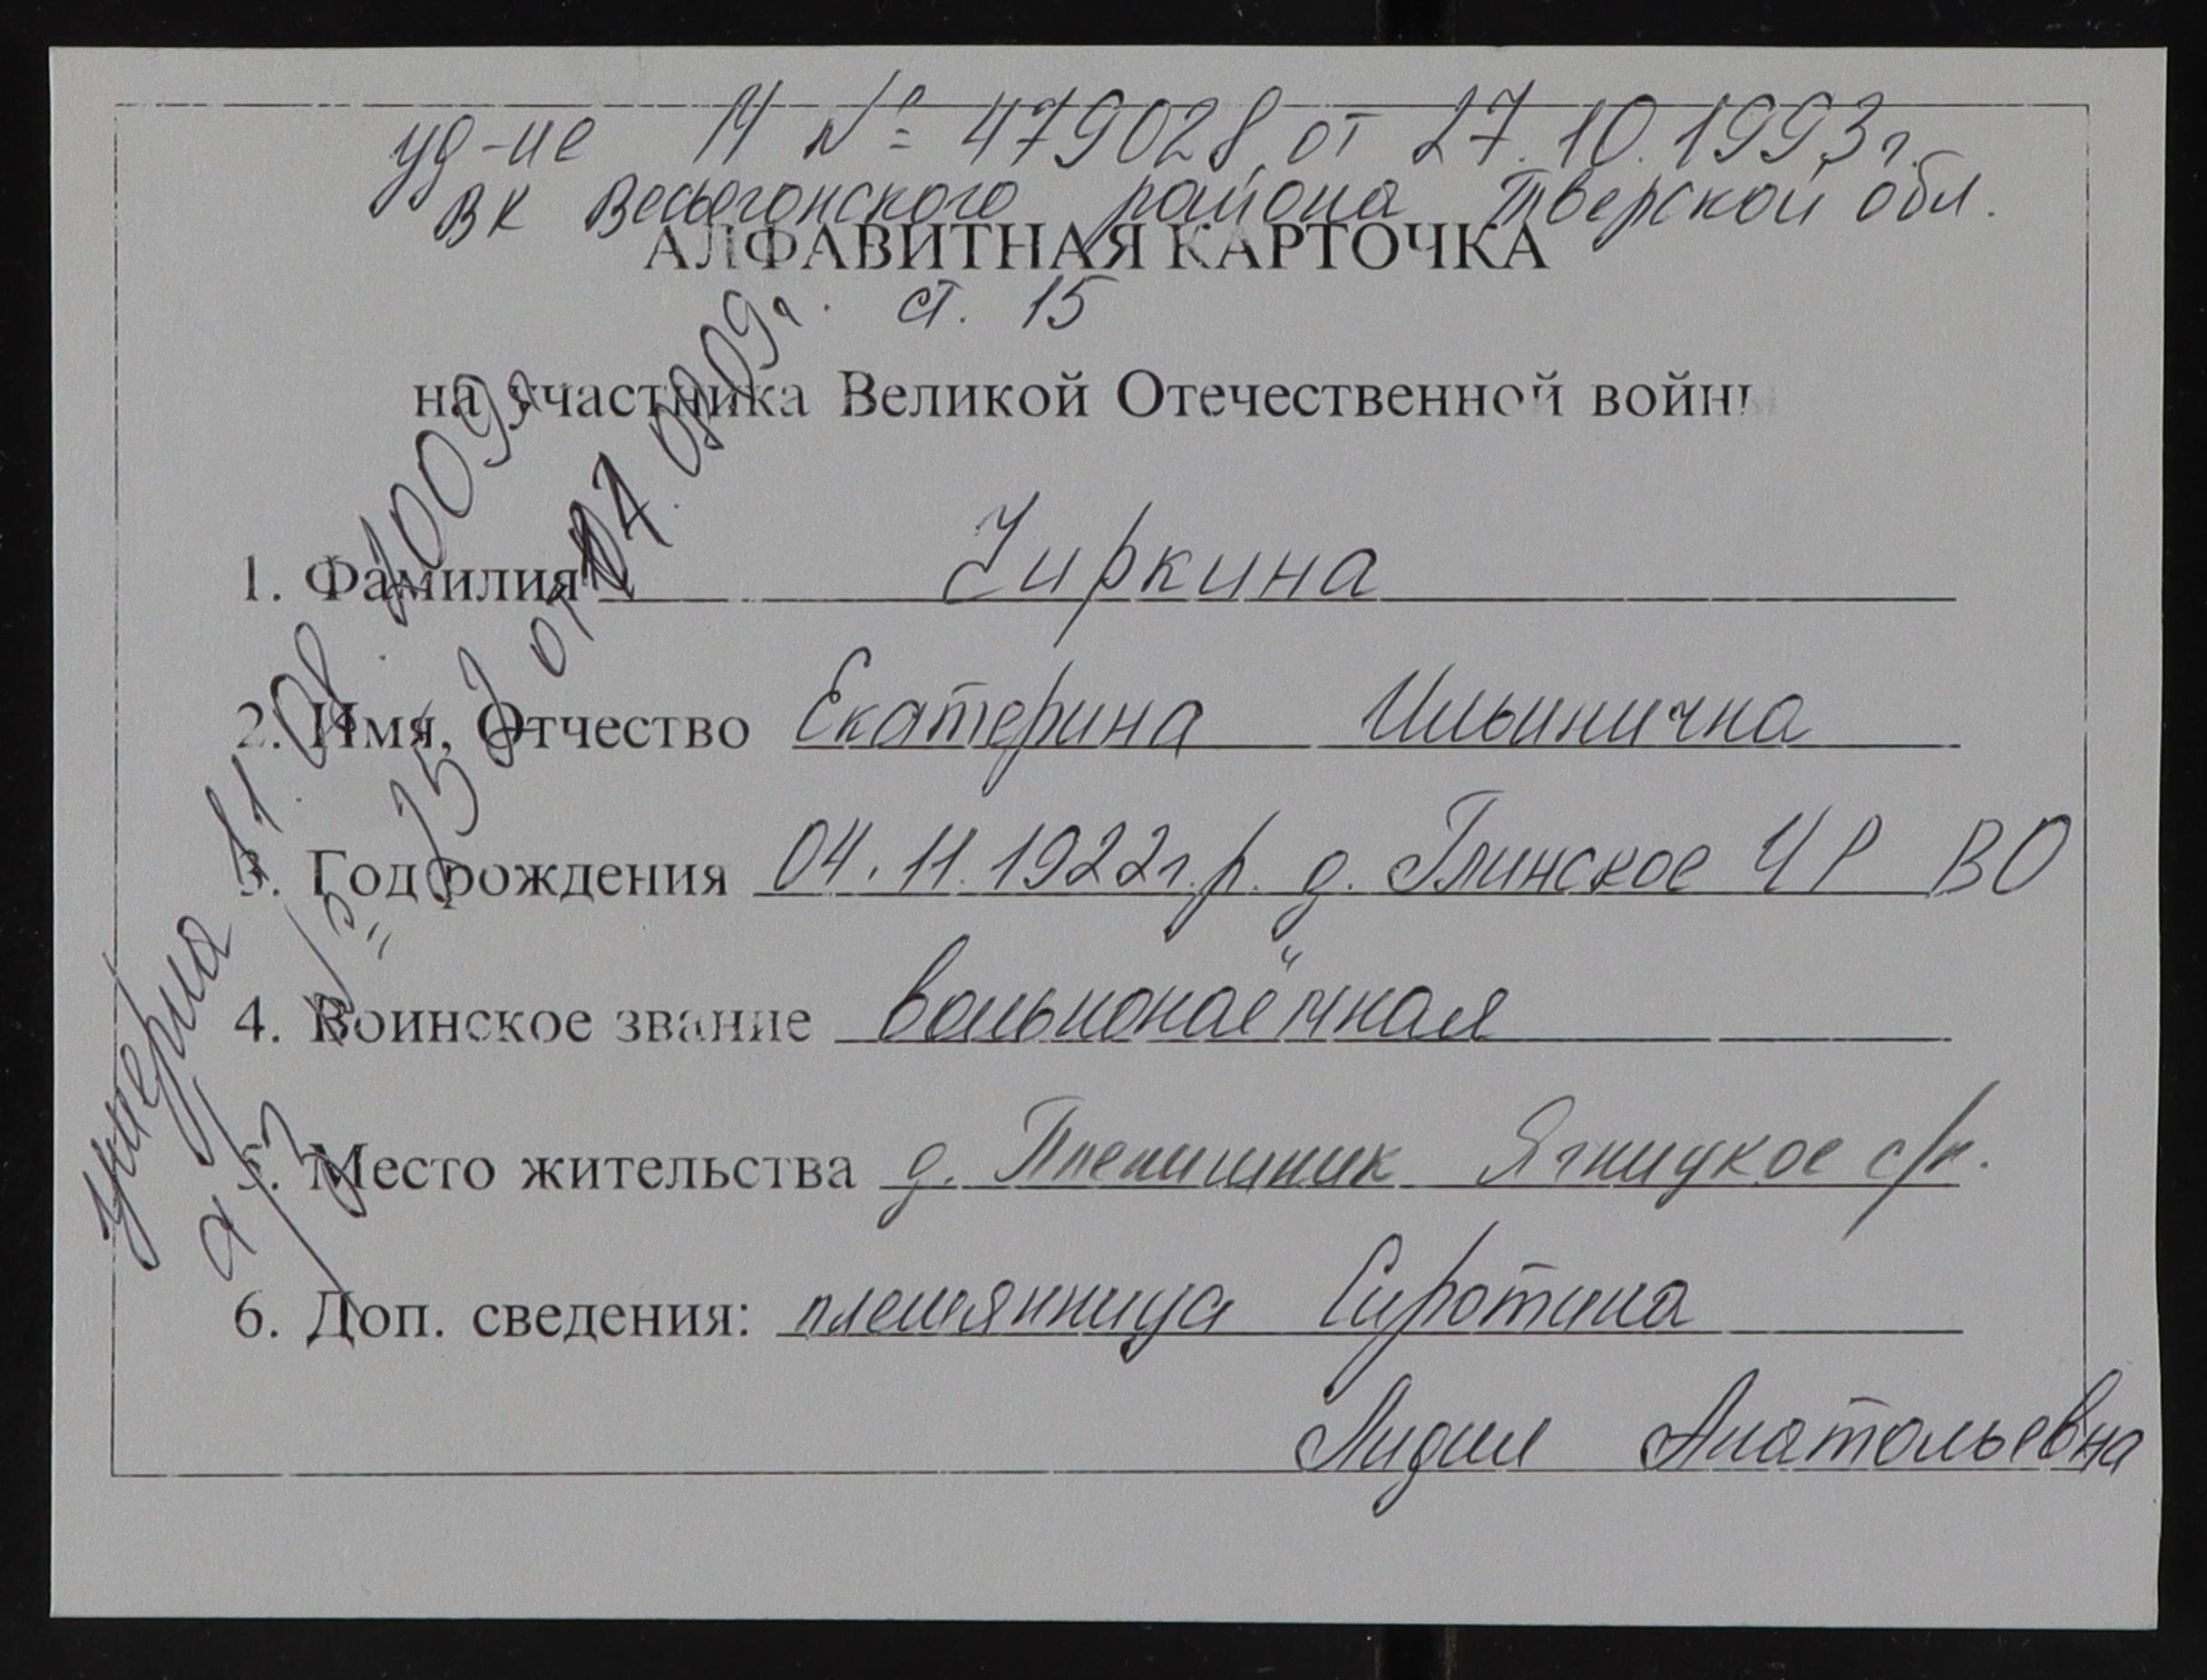 уд-ие М № 479028 от 27.10.1993г.
ВК Весьегонского района Тверской обл.
АЛФАВИТНАЯ КАРТОЧКА
ст. 15
на участника Великой Отечественной войны
1. Фамилия Чиркина
2. Имя, Отчество Екатерина Ильинична
3. Год рождения 04.11.1922г.р. д. Глинское ЧР ВО
4. Воинское звание вольнонаёмная
5. Место жительства д. Ягницкое с/п.
6. Доп. сведения: племянница Сиротина
Лидия Анатольевна
умерла 11.08.2009г.
а/з № от 08.09г.